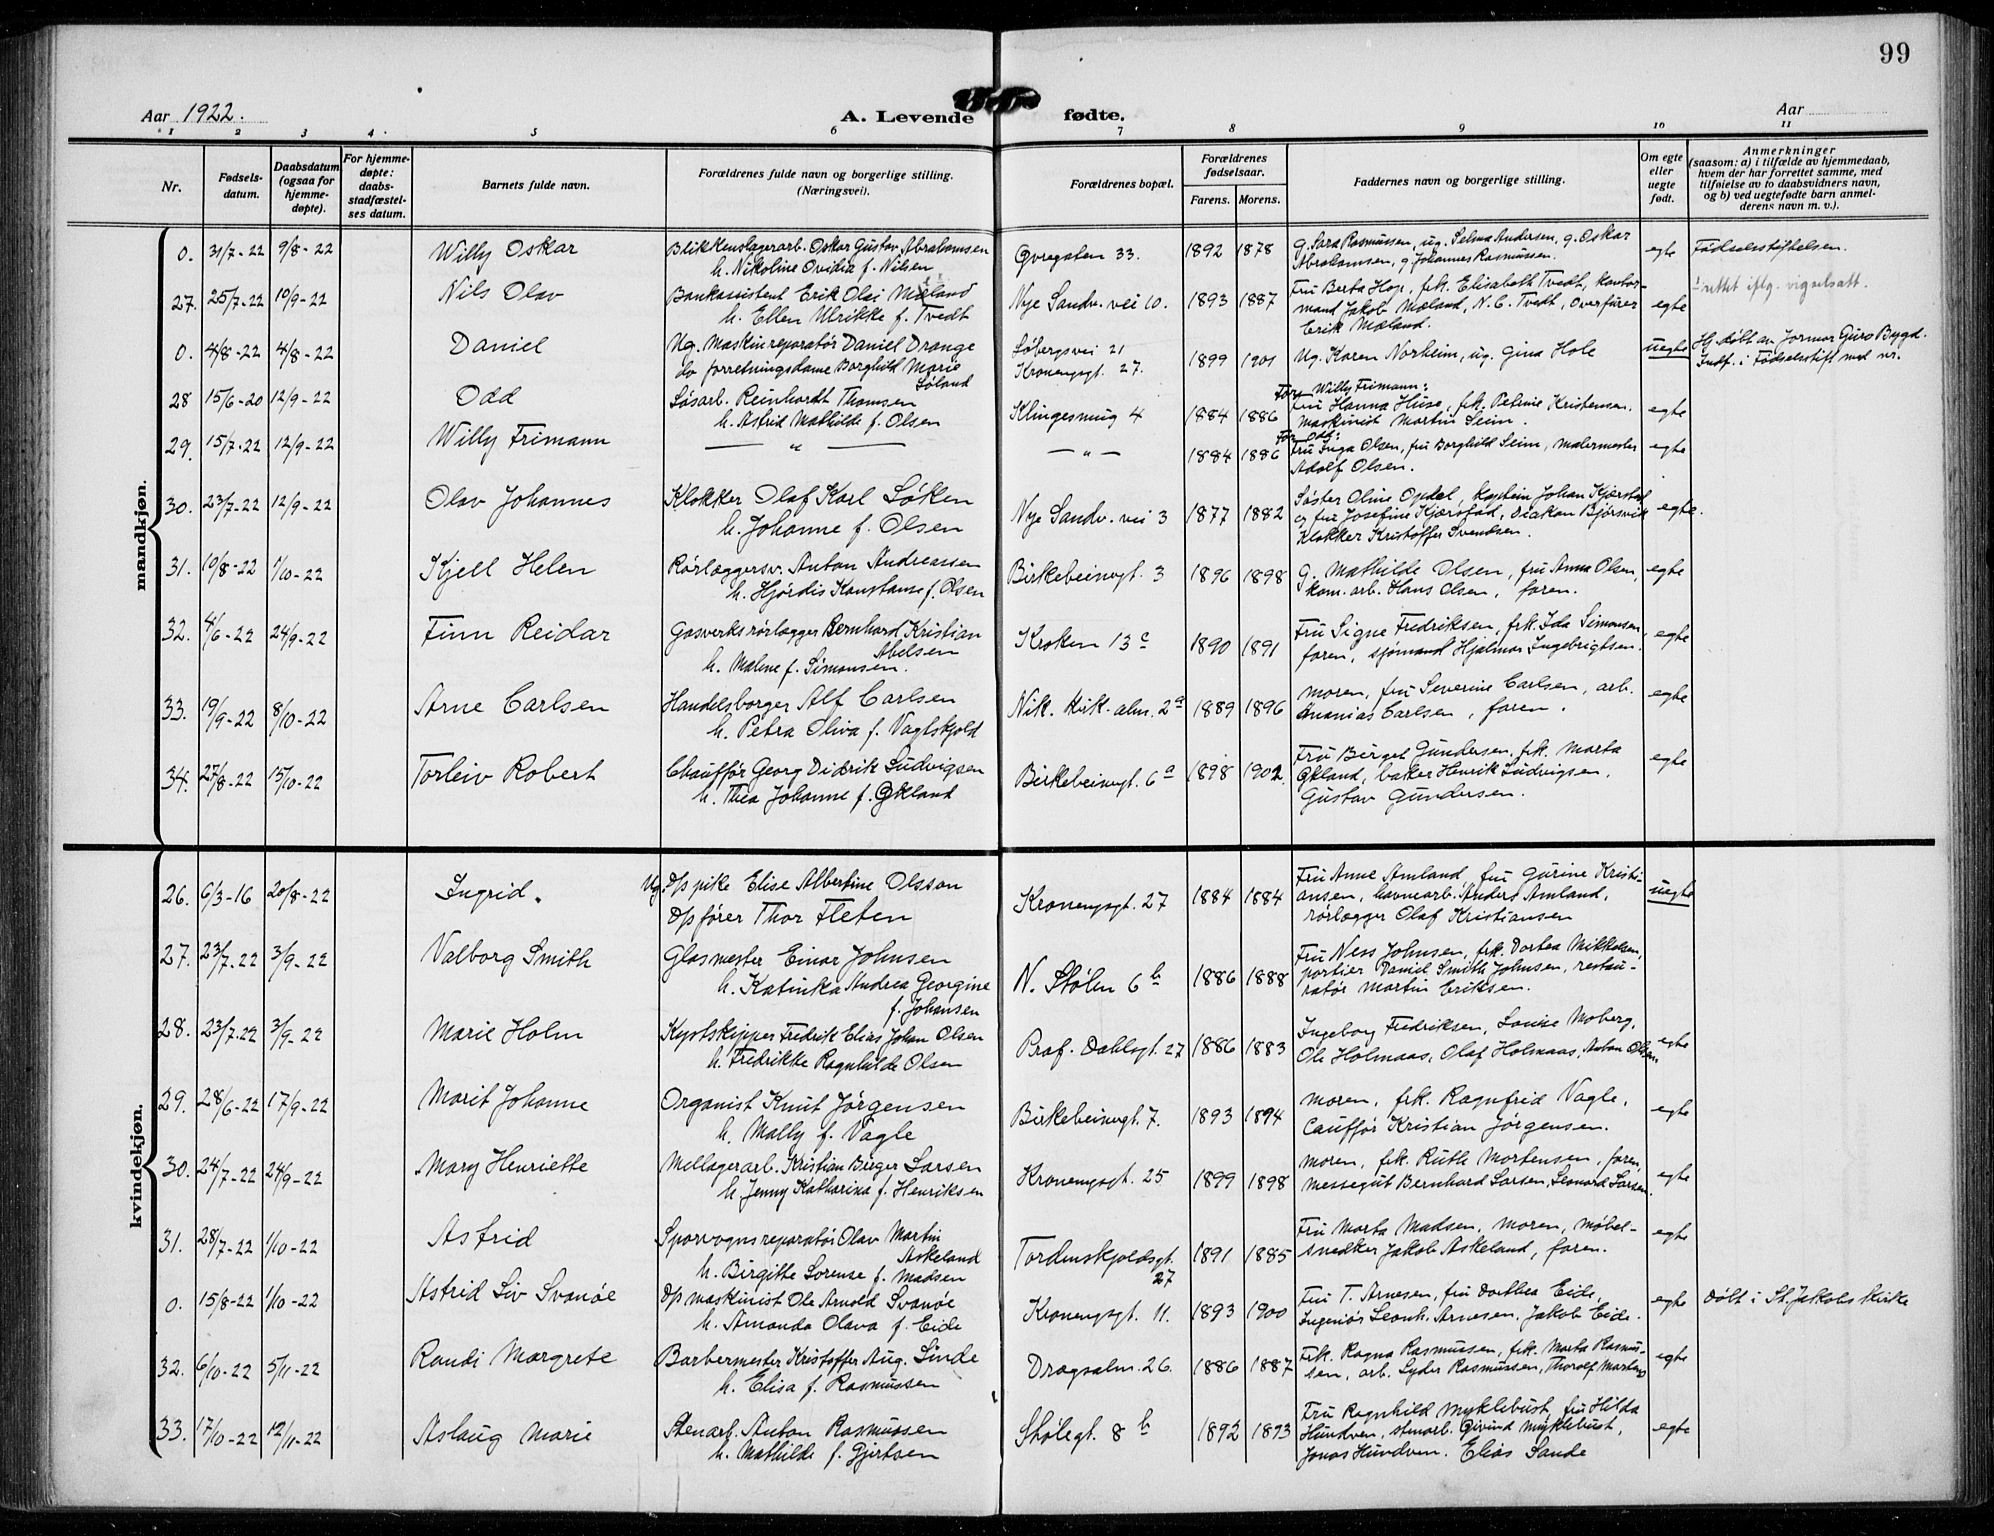 99
Aar 1922.
A. Levende fødte.
Aar
1 2 3 4 5 6 7 8 9 10 11
Nr.
Fødsels-
datum.
Daabsdatum
(ogsaa for
hjemme-
døpte).
For hjemme-
døpte:
daabs-
stadfæstel-
ses datum.
Barnets fulde navn.
Forældrenes fulde navn og borgerlige stilling.
(Næringsvei).
Forældrenes bopæl.
Forældrenes
fødselsaar.
Farens. Morens.
Faddernes navn og borgerlige stilling.
Om egte
eller
uegte
født.
Anmerkninger
(saasom: a) i tilfælde av hjemmedaab,
hvem der har forrettet samme, med
tilføielse av to daabsvidners navn,
og b) ved uegtefødte barn anmel-
derens navn m. v.).
mandkjøn.
0. 31/7-22 9/8-22 Willy Oskar
Blikkenslagerarb. Oskar Gustav Abrahamsen
h. Nikoline Ovidia f. Nilsen
Øvregaten 33. 1892 1878
g. Sara Rasmussen, ug. Selma Andersen, g. Oskar
Abrahamsen, g. Johannes Rasmussen.
egte Fødselsstiftelsen.
27. 25/7-22 10/9-22 Nils Olav
Bankassistent Erik Olai Mæland
h. Ellen Ulrikke f. Tvedt
Nye Sandv. vei 10. 1893 1887
Fru Berta Hop, frk. Elisabeth Tvedt, kontor-
mand Jakob Mæland, N. C. Tvedt, overfurer
Erik Mæland.
egte rettet iflg. vigselsatt.
0. 4/8-22 4/8-22 Daniel
Ug. Maskinreparatør Daniel Drange
do forretningsdame Borghild Marie
Søland
Søbergsvei 21
Kronengsgt. 27. 1899 1901
Ug. Karen Norheim, ug. Gina Hole
uegte Hj. døbt av Jormor Guro Bygd.
Indf. i Fødselsstift med nr.
28 15/6-20 12/9-22 Odd
Løsarb. Reinhardt Thomsen
h. Astrid Mathilde f. Olsen
Klingesmug 4 1884 1886
For Willy Frimann:
Fru Hanna Huse, frk. Petine Kristensen.
maskinist Martin Seim.
egte
29. 15/7-22 12/9-22 Willy Frimann
— " — — " — 1884 1886
For Odd:
Fru Inga Olsen, fru Borghild Seim, malermester
Adolf Olsen.
egte
30. 23/7-22 12/9-22 Olav Johannes
Klokker Olaf Karl Løken
h. Johanne f. Olsen
Nye Sandv. vei 3 1877 1882
Søster Oline Opdal, kaptein Johan Kjærstad
og fru Josefine Kjærstad, Diakon Bjørsvik
Klokker Kristoffer Svendsen.
egte.
31. 19/8-22 1/10-22 Kjell Helen
Rørlæggersv. Anton Andreassen
h. Hjørdis Konstanse f. Olsen
Birkebeinergt. 3 1896 1898
g. Mathilde Olsen, fru Anna Olsen,
kom. arb. Hans Olsen, faren.
egte
32. 4/6-22 24/9-22 Finn Reidar
Gasverksrørlægger Bernhard Kristian
Abelsen
h. Malene f. Simonsen.
Kroken 13c 1890 1891
Fru Signe Fredriksen, frk. Ida Simonsen,
faren, sjømand Hjalmar Ingebrigtsen.
egte
33. 19/9-22 8/10-22 Arne Carlsen
Handelsborger Alf Carlsen
h. Petra Oliva f. Vagtskjold
Nik. kirk. alm. 2a 1889 1896
moren, fru Severine Carlsen, arb.
Ananias Carlsen, faren.
egte
34. 27/8-22 15/10-22 Torleiv Robert
Chauffør Georg Didrik Ludvigsen
h. Thea Johanne f. Økland
Birkebeinergt. 6a 1898 1902.
Fru Birget Gundersen, frk. Marta
Økland, baker Henrik Ludvigsen,
Gustav Gundersen.
egte
kvindekjøn.
26. 6/3-16 20/8-22 Ingrid.
Ug. Op pike Elise Albertine Olsson
Opfører Thor Fleten
Kronengsgt. 27 1884 1884
Fru Anne Amland, fru Gurine Kristi-
ansen, havnearb. Anders Amland,
rørlægger Olaf Kristiansen
uegte
27. 23/7-22 3/9-22 Valborg Smith
Glasmester Einar Johnsen
h. Katinka Andrea Georgine
f. Johansen
N. Stølen 6b 1886 1888
Fru Ness Johnsen, frk. Dortea Mikkelsen,
portier Daniel Smith Johnsen, restau-
ratør Martin Eriksen.
28. 23/7-22 3/9-22 Marie Holm
Kystskipper Fredrik Elias Johan Olsen
h. Fredrikke Ragnhilde Olsen
Prof. Dahlsgt. 27 1886 1883
Ingeborg Fredriksen, Louise Moberg,
Ole Holmaas, Olaf Holmaas, Anton Olsen
egte
29. 28/6-22 17/9-22 Marit Johanne
Organist Knut Jørgensen
h. Mally f. Vagle
Birkebeinergt. 7. 1893 1894
moren, frk. Ragnfrid Vagle,
Cauffør Kristian Jørgensen.
egte
30. 24/7-22 24/9-22 Mary Henriette
Mellagerarb. Kristian Birger Larsen
h. Jenny Katharina f. Henriksen
Kronengsgt. 25 1899 1898
moren, frk. Ruth Mortensen, faren,
messegut Bernhard Larsen, Leonard Larsen.
egte
31. 28/7-22 1/10-22 Astrid
Sporvognsreparatør Olav Martin
Askeland
h. Birgitte Lorense f. Madsen
Tordenskjoldsgt.
27 1891 1885
Fru Marta Madsen, moren, møbel-
snedker Jakob Askeland, faren.
egte
0. 15/8-22 1/10-22 Astrid Liv Svanøe
Op maskinist Ole Arnold Svanöe
h. Amanda Olava f. Eide
Kronengsgt. 11. 1893 1900
Fru T. Arnesen, fru Dorthea Eide,
Ingeniør Leonh. Arnesen, Jakob Eide.
egte Døbt i St. Jakobs Kirke
32. 6/10-22 5/11-22 Randi Margrete
Barbermester Kristoffer Aug. Linde
h. Elisa f. Rasmussen
Dragsalm. 26. 1886 1887
Frk. Ragna Rasmussen, frk. Marta Rasmus-
sen, arb. Lyder Rasmussen, Thorolf Martens
egte
33. 17/10-22 12/11-22 Aslaug Marie
Stenarb. Anton Rasmussen
h. Mathilde f. Gjertsen
Stølegt. 8b 1892 1893
Fru Ragnhild Myklebust, fru Hilda
Hundven, stenarb. Øivind Myklebust,
Jonas Hundven. Elias Sande
egte